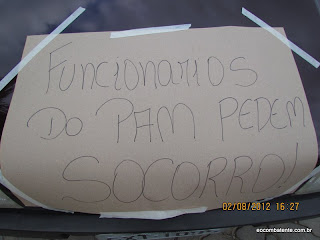 FUNCIONARIOS
DO PAM PEDEM
SOCORRO!
02/08/2012 16:27
aocombatente.com.br